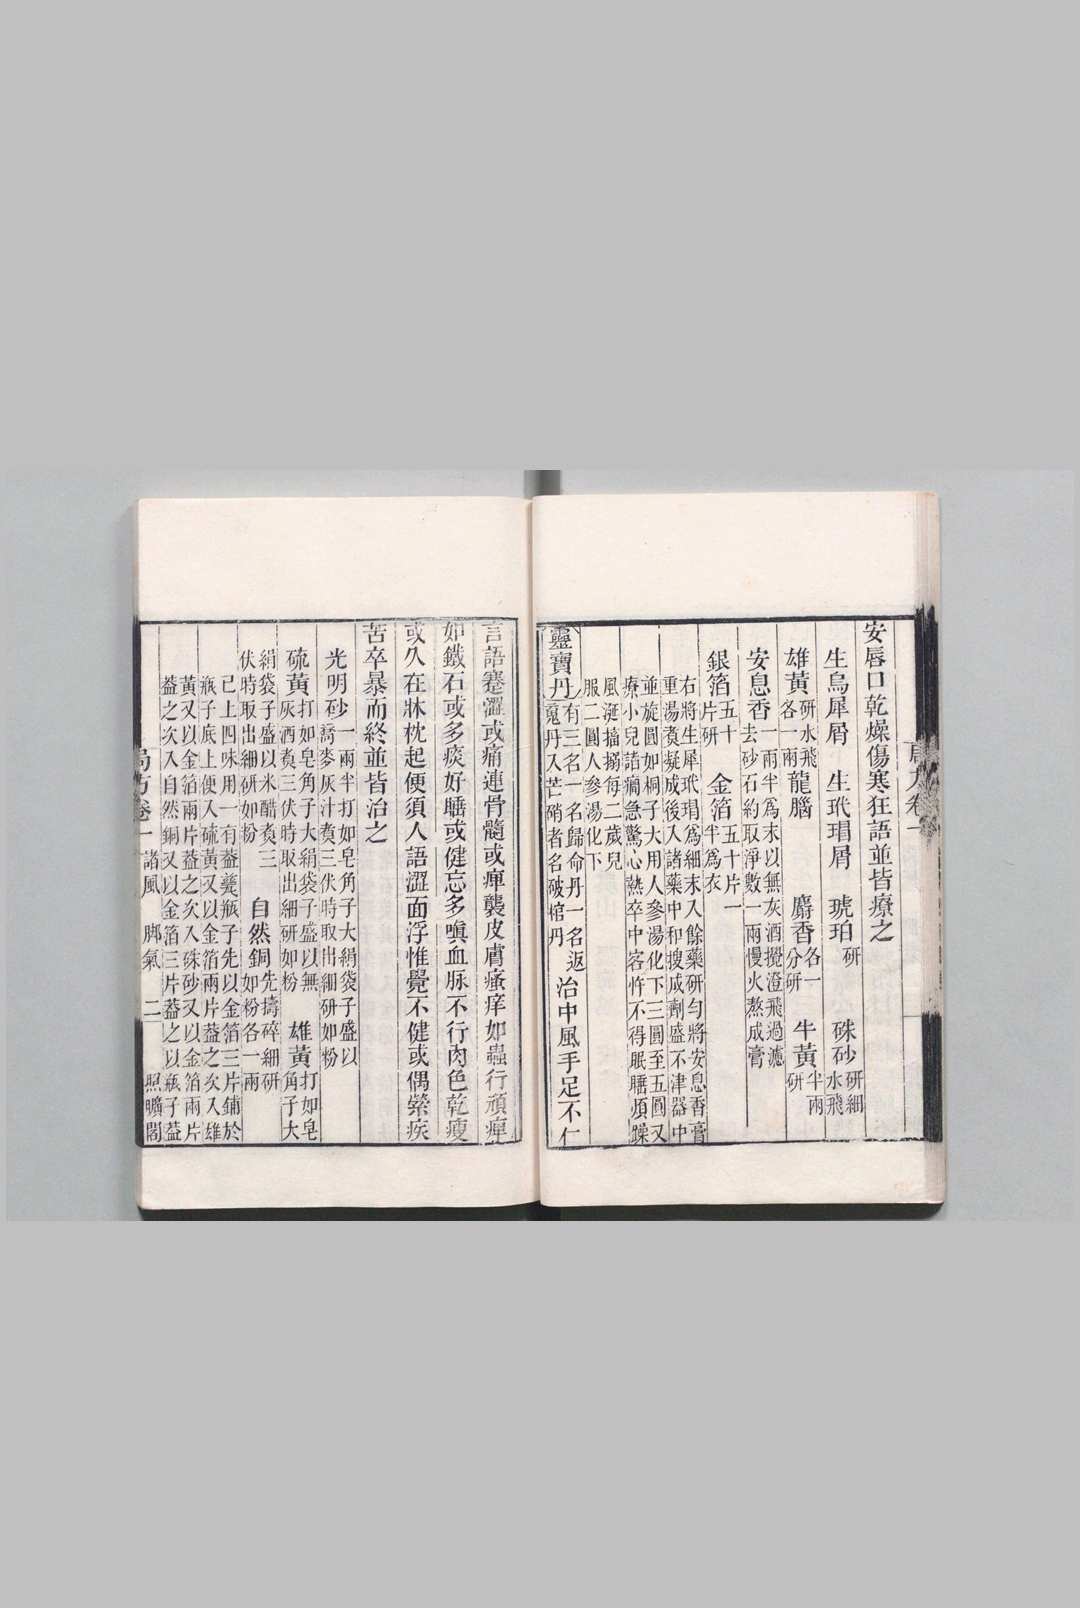 安唇口乾燥傷寒狂語並皆療之
生烏犀屑 生玳瑁屑 琥珀研 硃砂研細水飛
雄黃研水飛各一兩 龍腦 麝香各一分研 牛黃半兩研
安息香一兩半爲末以無灰酒攪澄飛過濾去砂石約取淨數一兩慢火熬成膏
銀箔五十片研 金箔五十片一半爲衣
右將生犀玳瑁爲細末入餘藥研勻將安息香膏
重湯煑凝成後入諸藥中和搜成劑盛不津器中
並旋圓如桐子大用人參湯化下三圓至五圓又
療小兒諸癇急驚心熱卒中客忤不得眠睡煩躁
風涎搐搦每二歲兒
服二圓人參湯化下
靈寶丹有三名一名歸命丹一名返魂丹入芒硝者名破棺丹 治中風手足不仁
言語蹇澀或痛連骨髓或痺襲皮膚瘙痒如蟲行頑痺
如鐵石或多痰好睡或健忘多嗔血脉不行肉色乾瘦
或久在牀枕起便須人語澀面浮惟覺不健或偶縈疾
苦卒暴而終並皆治之
光明砂一兩半打如皂角子大絹袋子盛以蕎麥灰汁煑三伏時取出細研如粉
硫黃打如皂角子大絹袋子盛以無灰酒煑三伏時取出細研如粉 雄黃打如皂角子大
絹袋子盛以米醋煑三伏時取出細研如粉 自然銅先擣碎細研如粉各一兩
已上四味用一有葢甆瓶子先以金箔三片鋪於
瓶子底上便入硫黃又以金箔兩片葢之次入雄
黃又以金箔兩片葢之次入硃砂又以金箔兩片
葢之次入自然銅又以金箔三片葢之以瓶子葢
局方卷一 諸風 脚氣 二 照曠閣